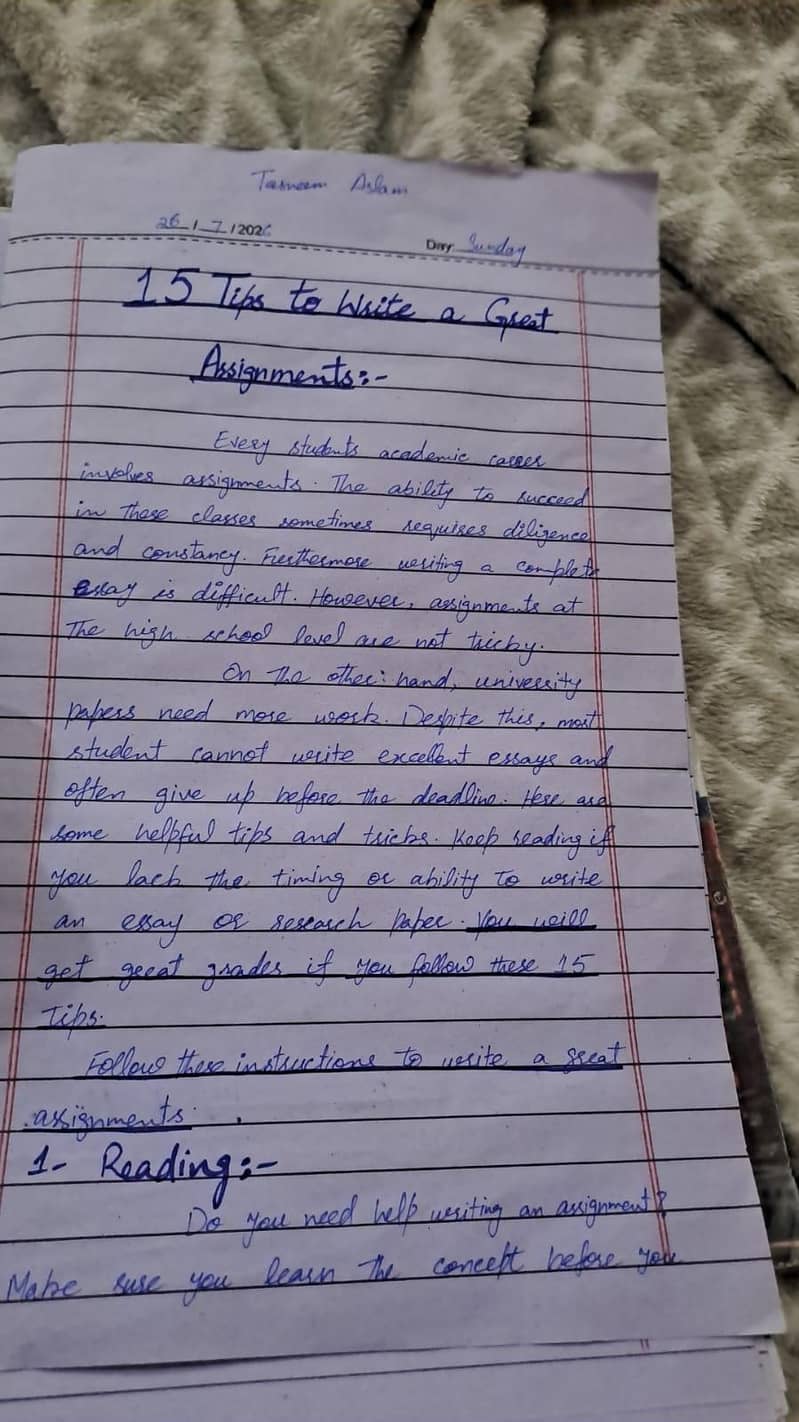 Tasneem Aslam
26 / 7 / 2026
Day: Sunday
15 Tips to Write a Great
Assignments:-
Every students academic career
involves assignments. The ability to succeed
in these classes sometimes requires diligence
and constancy. Furthermore writing a complete
essay is difficult. However, assignments at
The high school level are not tricky.
On the other hand, university
papers need more work. Despite this, most
student cannot write excellent essays and
often give up before the deadline. Here are
some helpful tips and tricks. Keep reading if
you lack the timing or ability to write
an essay or research paper. You will
get great grades if you follow these 15
Tips.
Follow these instructions to write a great
assignments.
1- Reading:-
Do you need help writing an assignment?
Make sure you learn the concept before you